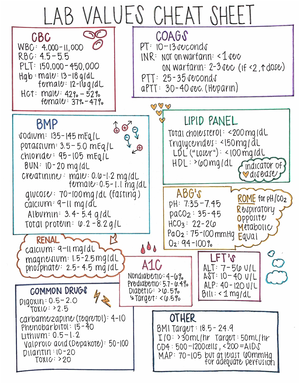 LAB VALUES CHEAT SHEET
CBC
WBC: 4,000-11,000
RBC: 4.5-5.5
PLT: 150,000-450,000
Hgb: male: 13-18g/dL
female: 12-16g/dL
HCT: male: 42%-52%
female: 37%-47%
COAGS
PT: 10-13 seconds
INR: Not on warfarin: <1 sec
on warfarin: 2-3 sec (if <2, ↑ dose)
PTT: 25-35 seconds
aPTT: 30-40 sec (Heparin)
BMP
sodium: 135-145 mEq/L
potassium: 3.5-5.0 mEq/L
chloride: 95-105 mEq/L
BUN: 10-20 mg/dL
creatinine: male: 0.6-1.2 mg/dL
female: 0.5-1.1 mg/dL
glucose: 70-100 mg/dL (fasting)
calcium: 9-11 mg/dL
Albumin: 3.4-5.4 g/dL
Total protein: 6.2-8.2 g/L
LIPID PANEL
Total cholesterol: <200 mg/dL
Triglycerides: <150 mg/dL
LDL ("Loser"): <100 mg/dL
HDL: >60 mg/dL
indicator of
disease
RENAL
calcium: 9-11 mg/dL
magnesium: 1.5-2.5 mg/dL
phosphate: 2.5-4.5 mg/dL
ABG's
pH: 7.35-7.45
paCO2: 35-45
HCO3: 22-26
PaO2: 75-100 mmHg
O2: 94-100%
ROME for pH/CO2
Respiratory
Opposite
Metabolic
Equal
A1C
Nondiabetic: 4-6%
Prediabetes: 5.7-6.4%
Diabetic: >6.5%
Target: <6.5%
LFT's
ALT: 7-56 U/L
AST: 10-40 U/L
ALP: 40-120 U/L
Bili: <1 mg/dL
COMMON DRUGS
Digoxin: 0.5-2.0
Toxic: >2.5
carbamazepine (tegretol): 4-10
Phenobarbital: 15-40
Lithium: 0.5-1.2
Valproic acid (Depakote): 50-100
Dilantin: 10-20
Toxic: >20
OTHER
BMI Target: 18.5-24.9
I/O: >30mL/hr Target: 50mL/hr
CD4: 500-1200 cells, <200=AIDS
MAP: 70-105 but at least 60mmHg
for adequate perfusion